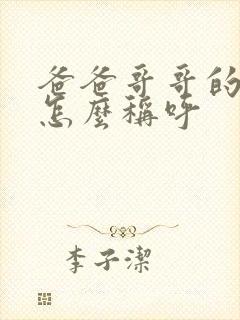 爸爸哥哥的
怎麼稱呼
李子潔